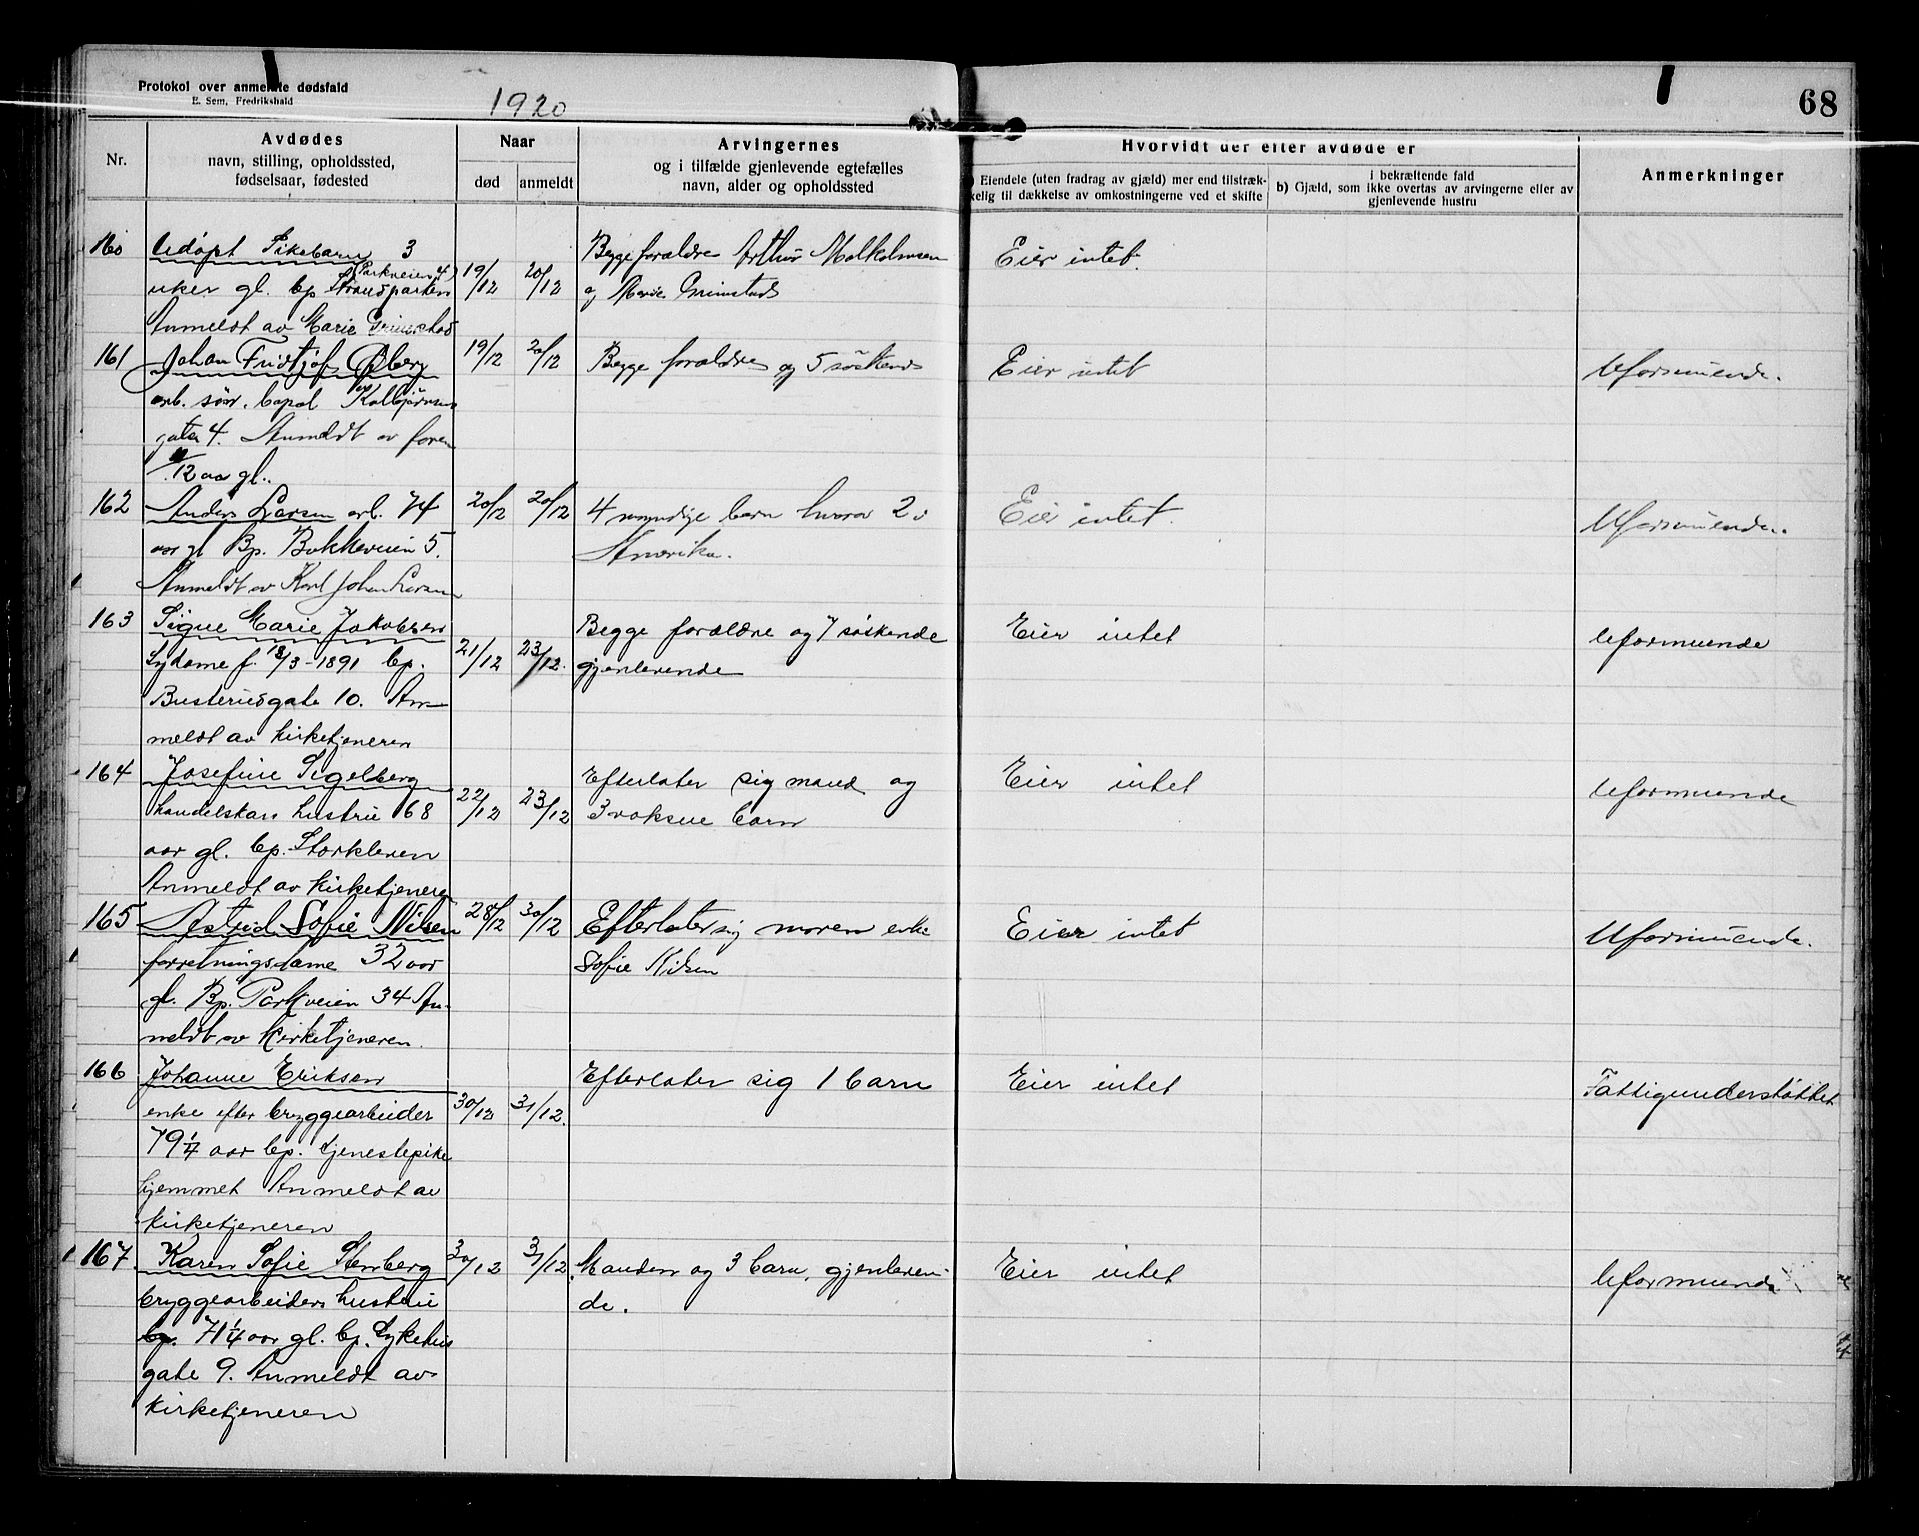 Protokol over anmeldte dødsfald
E. Sem, Fredrikshald
1920
68
Nr.
Avdødes
navn, stilling, opholdssted,
fødselsaar, fødested
Naar
død
anmeldt
Arvingernes
og i tilfælde gjenlevende egtefælles
navn, alder og opholdssted
Hvorvidt der efter avdøde er
a) Eiendele (uten fradrag av gjæld) mer end tilstræk-
kelig til dækkelse av omkostningerne ved et skifte
i bekræftende fald
b) Gjæld, som ikke overtas av arvingerne eller av
gjenlevende hustru
Anmerkninger
160
Udøpt Pikebarn 3
(Parkveien 4)
uker gl. bp Strandparken
Anmeldt av Marie Grimstad
19/12
20/12
Begge forældre Arthur Malkolmsen
og Marie Grimstad
Eier intet.
161
Johan Fridtjof Øberg
arb. søn. bopæl Kolbjørnsens
gate 4. Anmeldt av faren
/12 aar gl.
19/12
20/12
Begge forældre og 5 søskende
Eier intet
Uformuende.
162
Anders Larsen arb. 74
aar gl Bp. Bakkeveien 5.
Anmeldt av Karl Johan Larsen
20/12
20/12
4 myndige barn hvorav 2 i
Amerika.
Eier intet.
Uformuende.
163
Signe Marie Jakobsen
Sydame f. 18/3-1891 bp.
Busterudsgate 10. An-
meldt av kirketjeneren
21/12
23/12.
Begge forældre og 7 søskende
gjenlevende
Eier intet
Uformuende
164
Josefine Segelberg
handelskar hustru 68
aar gl. bp. Storkleven
Anmeldt av kirketjeneren
22/12
23/12
Efterlater sig mand og
3 voksne barn
Eier intet
Uformuende
165
Astrid Sofie Nilsen
forretningsdame 32 aar
gl. Bp. Parkveien 34 An-
meldt av kirketjeneren.
28/12
30/12
Efterlater sig moren enke
Sofie Nilsen
Eier intet
Uformuende.
166
Johanne Eriksen
enke efter bryggearbeider
79 1/4 aar bp. tjenestepike
hjemmet Anmeldt av
kirketjeneren
30/12
31/12.
Efterlater sig 1 barn
Eier intet
Fattigunderstøttet
167.
Karen Sofie Stenberg
bryggearbeiders hustru
bp. 71 1/4 aar gl. bp. Sykehus
gate 9. Anmeldt av
kirketjeneren
30/12
31/12
Manden og 3 barn gjenleven-
de.
Eier intet
Uformuende